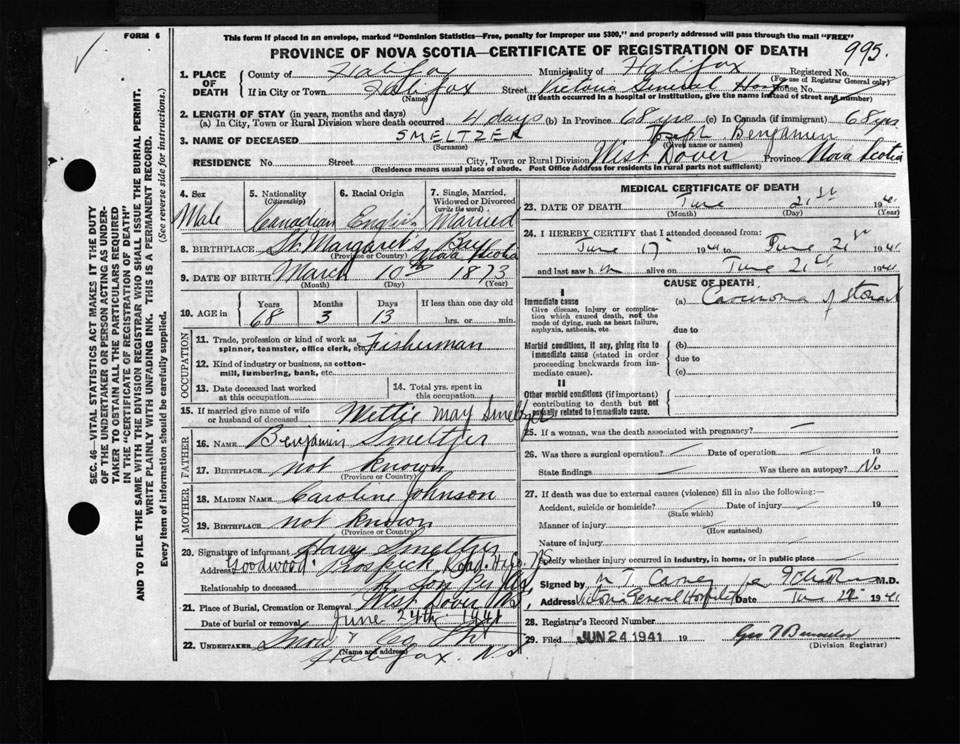 FORM 6
This form if placed in an envelope, marked "Dominion Statistics—Free, penalty for improper use $300," and properly addressed will pass through the mail "FREE"
PROVINCE OF NOVA SCOTIA—CERTIFICATE OF REGISTRATION OF DEATH
995.
1. PLACE OF DEATH
County of Halifax Municipality of Halifax Registered No.
(For use of Registrar General only)
If in City or Town Halifax Street Victoria General Hosp House No.
(Name) (If death occurred in a hospital or institution, give the name instead of street and number)
2. LENGTH OF STAY (in years, months and days)
(a) In City, Town or Rural Division where death occurred 4 days (b) In Province 68 yrs (c) In Canada (if immigrant) 68 yrs
3. NAME OF DECEASED SMELTZER Joseph Benjamin
(Surname) (Given name or names)
RESIDENCE No. Street City, Town or Rural Division West Dover Province Nova Scotia
(Residence means usual place of abode. Post Office Address for residents in rural parts not sufficient)
4. Sex
Male
5. Nationality
(Citizenship)
Canadian
6. Racial Origin
English
7. Single, Married, Widowed or Divorced
(write the word)
Married
8. BIRTHPLACE St. Margaret's Bay Nova Scotia
(Province or Country)
9. DATE OF BIRTH March 10th 1873
(Month) (Day) (Year)
10. AGE in
Years Months Days If less than one day old
68 3 13 hrs. or min.
OCCUPATION
11. Trade, profession or kind of work as spinner, teamster, office clerk, etc. fisherman
12. Kind of industry or business, as cotton-mill, lumbering, bank, etc.
13. Date deceased last worked at this occupation
14. Total yrs. spent in this occupation
15. If married give name of wife or husband of deceased Nettie May Smeltzer
FATHER
16. NAME Benjamin Smeltzer
17. BIRTHPLACE not known
(Province or Country)
MOTHER
18. MAIDEN NAME Caroline Johnson
19. BIRTHPLACE not known
(Province or Country)
20. Signature of informant Harry Smeltzer
Address Goodwood Prospect Road, Hfx. NS
Relationship to deceased Son
21. Place of Burial, Cremation or Removal West Dover NS
Date of burial or removal June 24th 1941
22. UNDERTAKER Snow & Co Ltd
(Name and Address)
Halifax. N.S.
MEDICAL CERTIFICATE OF DEATH
23. DATE OF DEATH June 21st 1941
(Month) (Day) (Year)
24. I HEREBY CERTIFY that I attended deceased from:
June 17 1941 to June 21st 1941
and last saw him alive on June 21st 1941
CAUSE OF DEATH
I
Immediate cause
Give disease, injury or complication which caused death, not the mode of dying, such as heart failure, asphyxia, asthenia, etc.
(a) Carcinoma of Stomach
due to
Morbid conditions, if any, giving rise to immediate cause (stated in order proceeding backwards from immediate cause).
(b)
due to
(c)
II
Other morbid conditions (if important) contributing to death but not causally related to immediate cause.
25. If a woman, was the death associated with pregnancy?
26. Was there a surgical operation? Date of operation 19
State findings Was there an autopsy? No
27. If death was due to external causes (violence) fill in also the following:—
Accident, suicide or homicide? Date of injury 19
(State which)
Manner of injury
(How sustained)
Nature of injury
Specify whether injury occurred in industry, in home, or in public place
Signed by M.D.
Address Victoria General Hospital Date June 1941
28. Registrar's Record Number
29. Filed JUN 24 1941 19
(Division Registrar)
SEC. 46—VITAL STATISTICS ACT MAKES IT THE DUTY
OF THE UNDERTAKER OR PERSON ACTING AS UNDER-
TAKER TO OBTAIN ALL THE PARTICULARS REQUIRED
IN THE "CERTIFICATE OF REGISTRATION OF DEATH"
AND TO FILE THE SAME WITH THE DIVISION REGISTRAR WHO SHALL ISSUE THE BURIAL PERMIT.
WRITE PLAINLY WITH UNFADING INK. THIS IS A PERMANENT RECORD.
Every item of information should be carefully supplied. (See reverse side for instructions.)